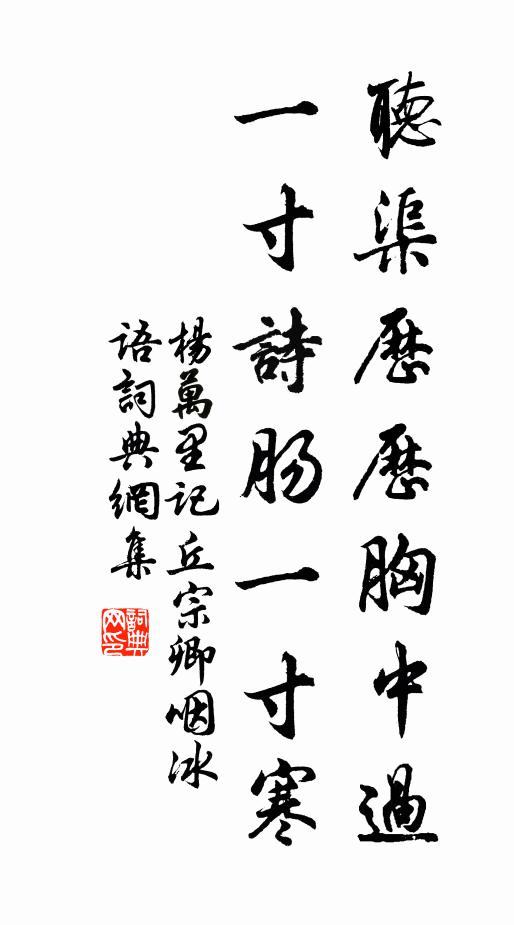 聽渠歷歷胸中過
一寸詩肠一寸寒
楊萬里記丘宗卿咽冰
语詞典網集
詞典網印